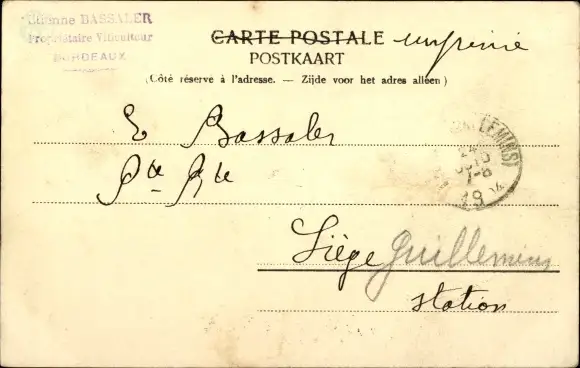 Etienne BASSALER
Propriétaire Viticulteur
BORDEAUX
CARTE POSTALE imprimé
POSTKAART
(Côté réservé à l'adresse. — Zijde voor het adres alleen)
E Bassaler
Pte Rte
Liège Guillemins
station